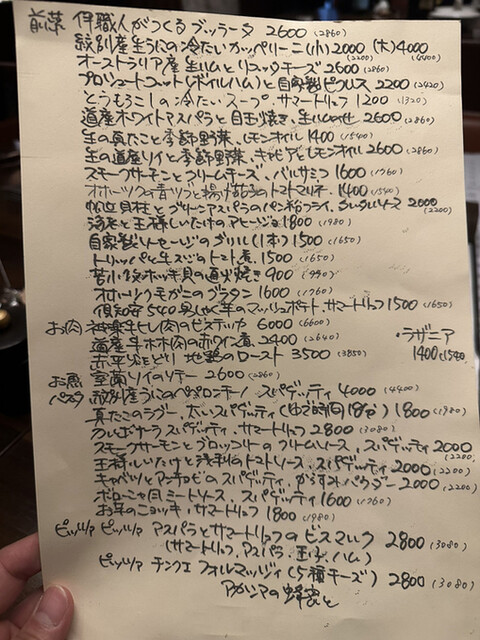 前菜 伊職人がつくるブッラータ 2600 (2860)
紋別産生うにの冷たいカッペリーニ(小) 2000 (大)4000
(2200) (4400)
オーストラリア産生ハムとリコッタチーズ 2600 (2860)
プロシュートコット(ボイルハム)と自家製ピクルス 2200 (2420)
とうもろこしの冷たいスープ、サマートリュフ 1200 (1320)
道産ホワイトアスパラと目玉焼き、生ハムのせ 2600 (2860)
生の真たこと季節野菜、レモンオイル 1400 (1540)
生の道産ソイと季節野菜、キャビアとレモンオイル 2600 (2860)
スモークサーモンとクリームチーズ、バルサミコ 1600 (1760)
オホーツクの青ツブと揚げ茄子のトマトマリネ 1400 (1540)
帆立貝柱とグリーンアスパラのパン粉フライ、タルタルソース 2000
(2200)
海老と王様しいたけのアヒージョ 1800 (1980)
自家製ソーセージのグリル(1本) 1500 (1650)
トリッパと牛スジのトマト煮 1500 (1650)
苫小牧ホッキ貝の直火焼き 900 (990)
オホーツク毛ガニのグラタン 1600 (1760)
倶知安540男しゃく芋のマッシュポテト、サマートリュフ 1500 (1650)
お肉 神楽牛ヒレ肉のビステッカ 6000 (6600)
道産牛ホホ肉の赤ワイン煮 2400 (2640)
赤平火をどり地鶏のロースト 3500 (3850)
・ラザニア
1400 (1540)
お魚 室蘭ソイのソテー 2600 (2860)
パスタ 紋別産生うにのペペロンチーノ スパゲッティ 4000 (4400)
真たこのラグー、太いスパゲッティ(ゆで時間18分) 1800 (1980)
カルボナーラスパゲッティ、サマートリュフ 2800 (3080)
スモークサーモンとブロッコリーのクリームソース、スパゲッティ 2000
(2200)
王様しいたけと浅利のトマトソース、スパゲッティ 2000
(2200)
キャベツとアンチョビのスパゲッティ、からすみパウダー 2000
(2200)
ボローニャ風ミートソース、スパゲッティ 1600 (1760)
お芋のニョッキ、サマートリュフ 1800 (1980)
ピッツァ ピッツァ アスパラとサマートリュフのビスマルク 2800 (3080)
(サマートリュフ、アスパラ、玉子、ハム)
ピッツァ チンクエフォルマッジィ(5種チーズ) 2800 (3080)
アカシアの蜂蜜と